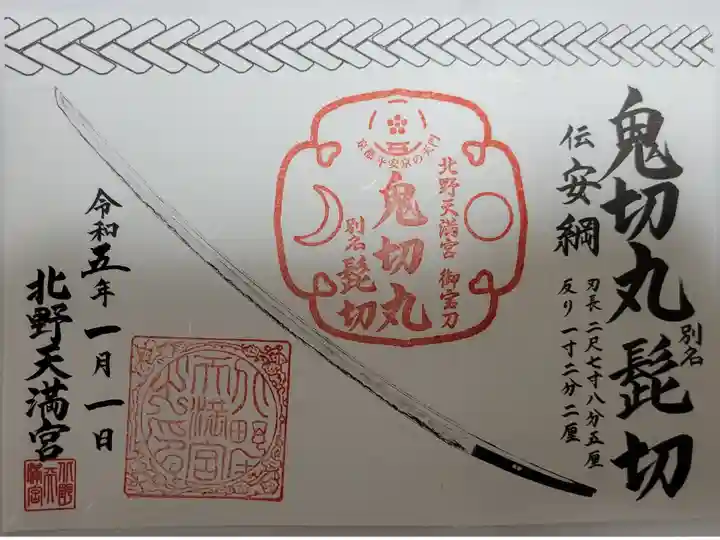 鬼切丸
別名
髭切
伝 安綱
刃長 二尺七寸八分五厘
反り 一寸二分二厘
京都平安京の天門
北野天満宮 御宝刀
鬼切丸
別名
髭切
令和五年 一月一日
北野天満宮